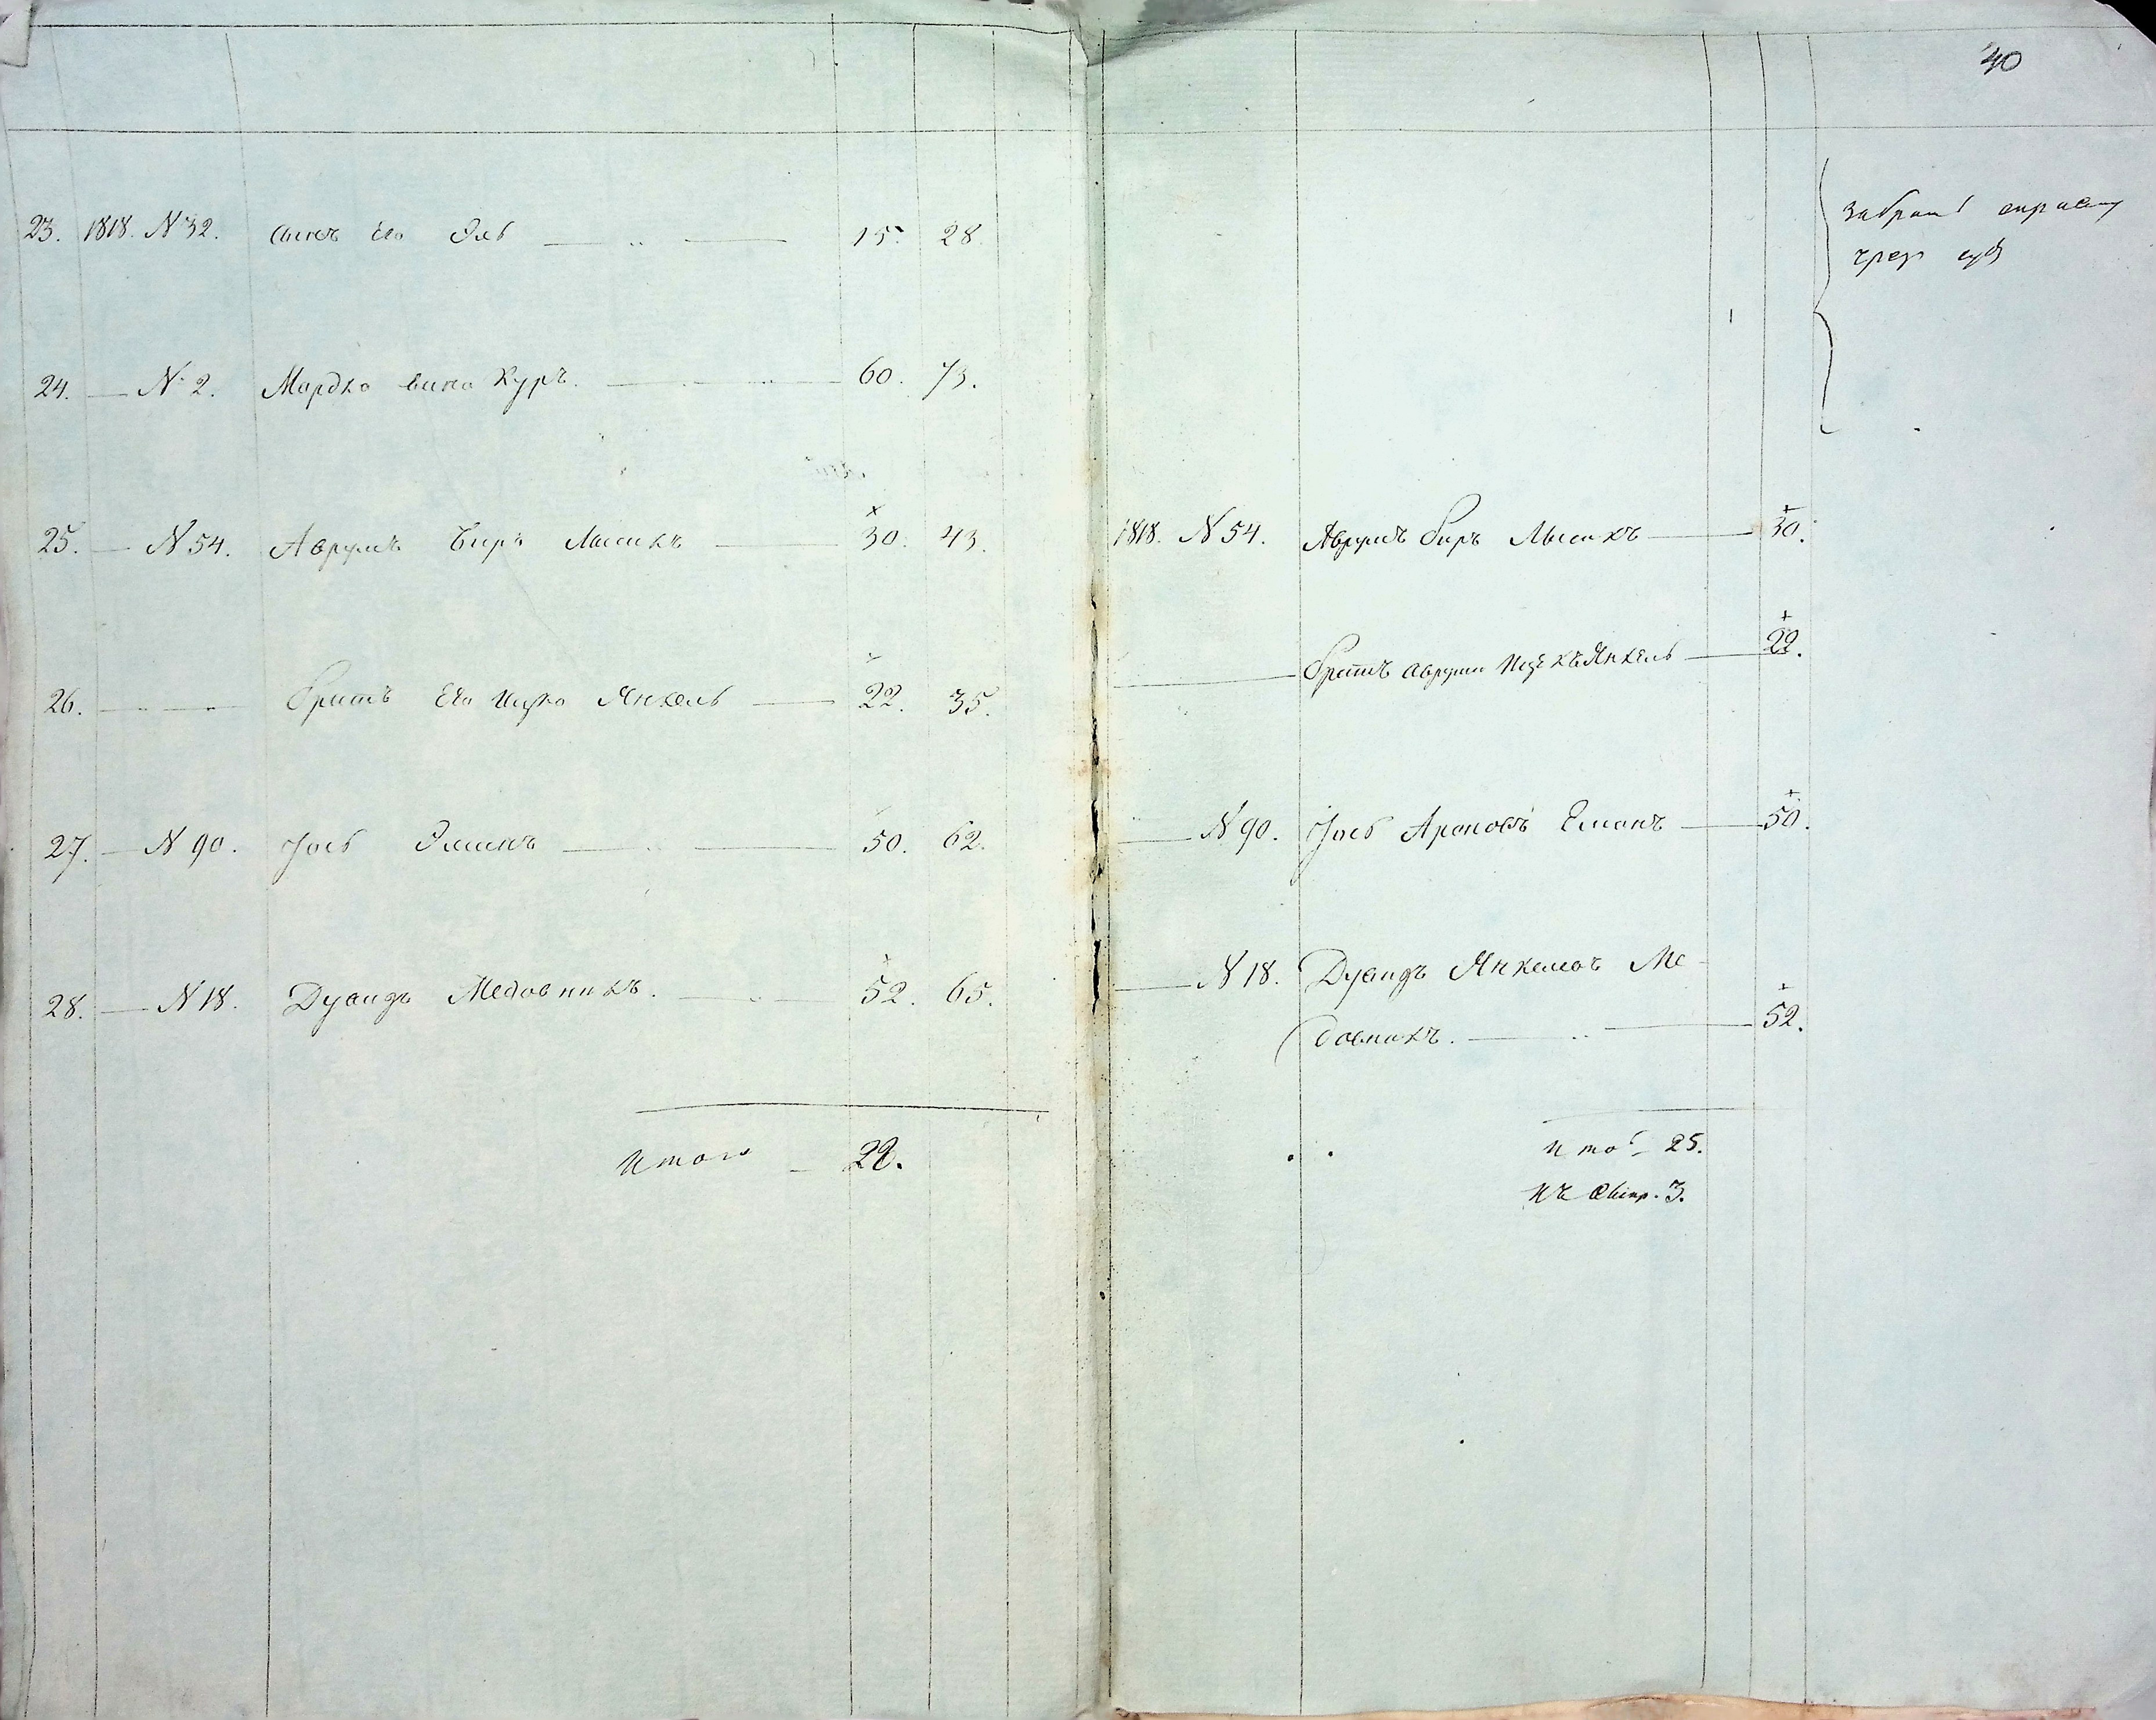 40
23. 1818. № 32. сынъ Его Эль 15. 28.
24. — № 2. Мордко вино Куръ. 60. 73.
25. — № 54. Аврумъ Беръ Лысикъ — 30. 43.
26. — Братъ Его Ицко Янкель — 22. 35.
27. — № 90. Іось Элманъ — 50. 62.
28. — № 18. Дувидъ Медовникъ. — 52. 65.
Итого — 28.
чрез
1818. № 54. Аврумъ Беръ Лысикъ — 30.
Братъ Аврума Ицекъ Янкель — 22.
— № 90. Іось Ароновъ Елманъ — 50.
— № 18. Дувидъ Янкелевъ Ме-
довникъ. — 52.
Ито — 25.
3.